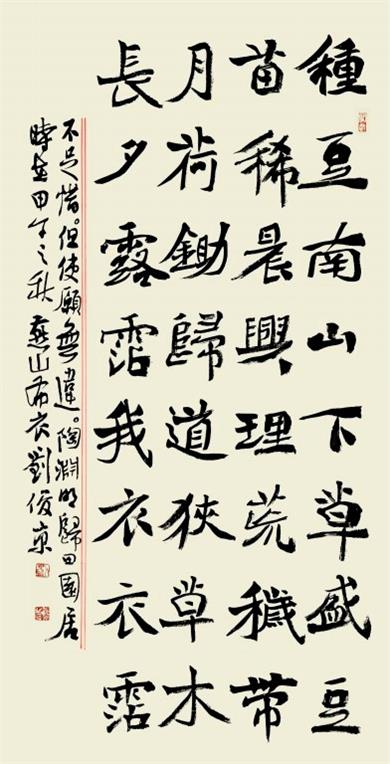 種豆南山下草盛豆
苗稀晨興理荒穢帶
月荷鋤歸道狹草木
長夕露霑我衣衣霑
不足惜。但使願無違。陶淵明歸田園居
時在甲午之秋燕山布衣劉俊京